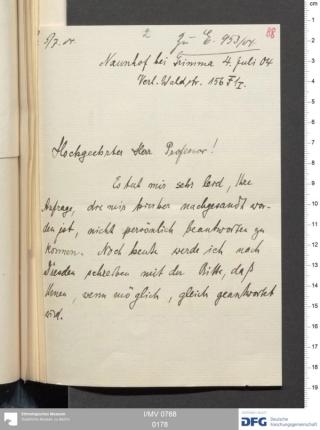 5/7. 04.
2
Zu E. 953/04
88
Naunhof bei Grimma 4. Juli 04
Verl. Waldstr. 156 F I.
Hochgeehrter Herr Professor!
Es tut mir sehr leid, Ihre
Anfrage, die mir hierher nachgesandt wor-
den ist, nicht persönlich beantworten zu
können. Noch heute werde ich nach
Dresden schreiben mit der Bitte, daß
Ihnen, wenn möglich, gleich geantwortet
wird.
Ethnologisches Museum
Staatliche Museen zu Berlin
I/MV 0768
0178
gefördert durch
DFG Deutsche
Forschungsgemeinschaft